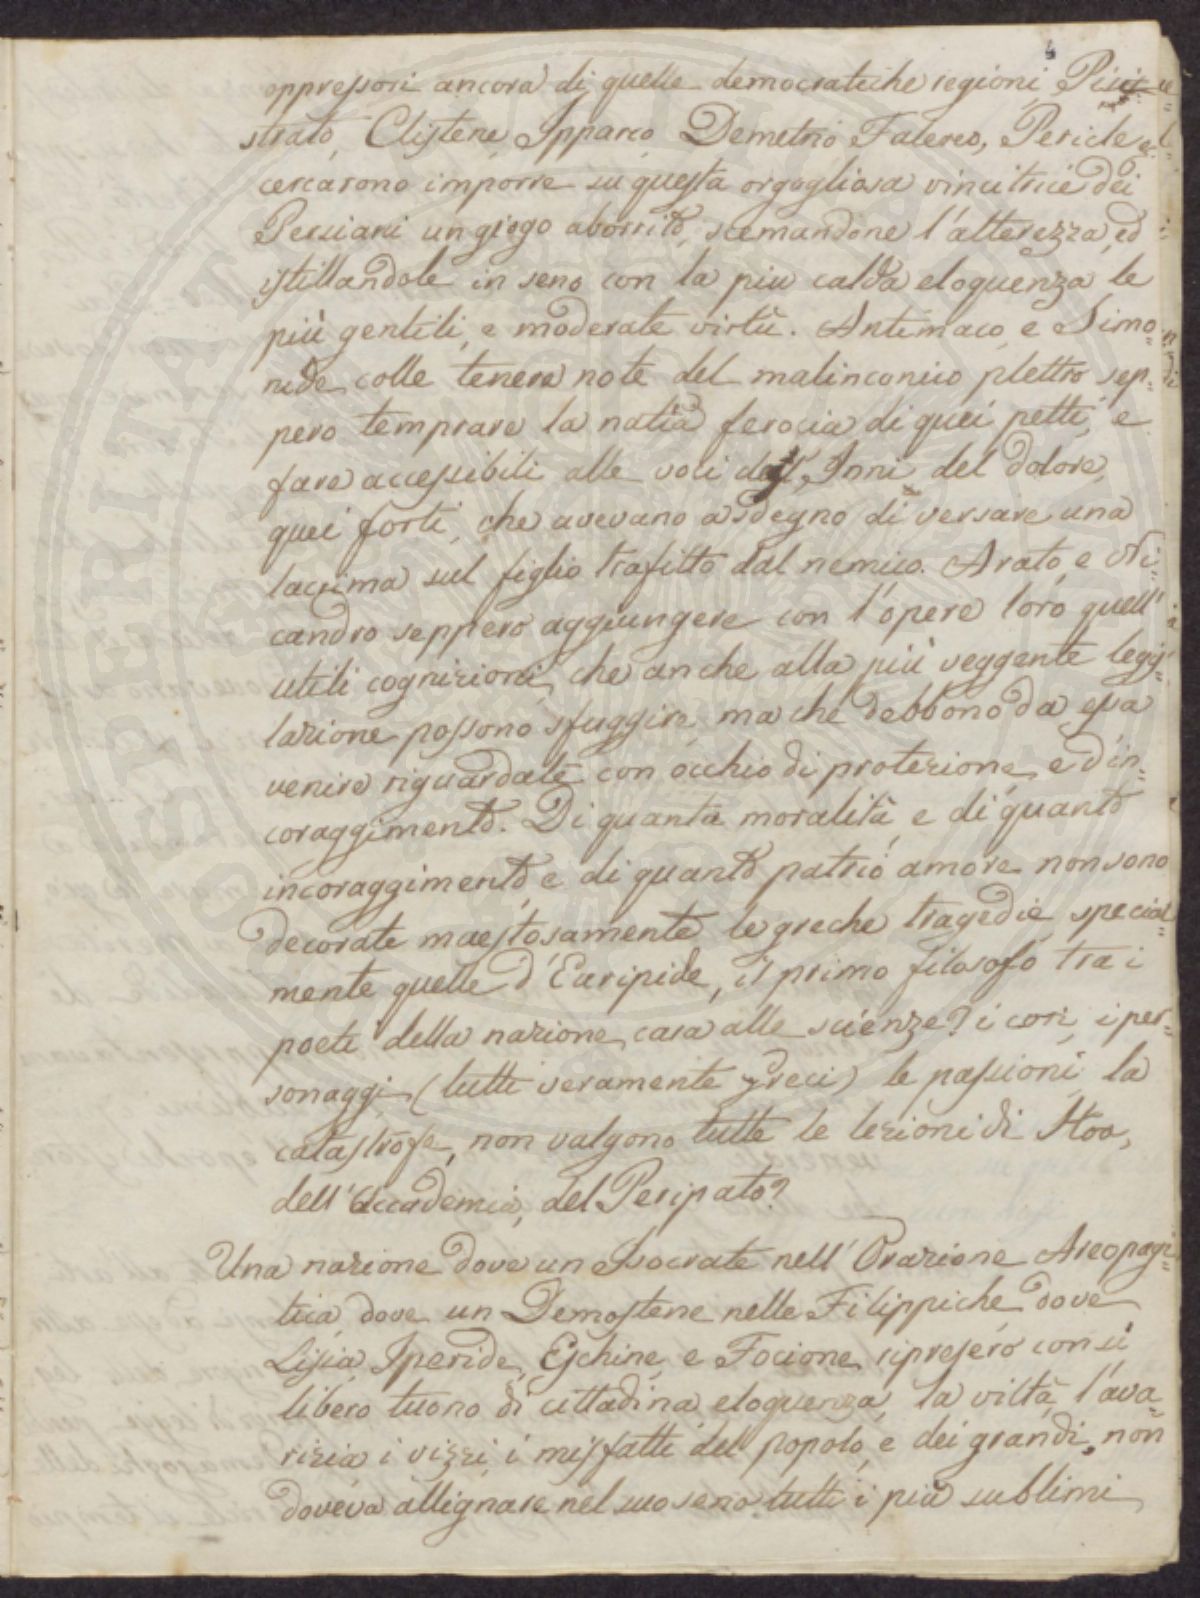 4
oppressori ancora di quelle democratiche regioni, Pisi-
strato, Clistene, Ipparco, Demetrio Falereo, Pericle
cercarono imporre su questa orgogliosa vincitrice dei
Persiani un giogo aborrito, scemandone l'alterezza, ed
istillandole in seno con la piu calda eloquenza le
più gentili, e moderate virtù. Antimaco, e Simo=
nide colle tenere note del malinconico plettro sep=
pero temprare la natia ferocia di quei petti, e
fare accessibili alle voci dell'Inni del dolore,
quei forti, che avevano a sdegno di versare una
lacrima sul figlio trafitto dal nemico. Arato, e Ni=
candro seppero aggiungere con l'opere loro quell'
utili cognizioni, che anche alla più veggente legis=
lazione possono sfuggire, ma che debbono da essa
venire riguardate con occhio di protezione, ed in=
coraggimento. Di quanta moralità, e di quanto
incoraggimento, e di quanto patrio amore non sono
decorate maestosamente le greche tragedie, special=
mente quelle d'Euripide, il primo filosofo tra i
poeti della nazione cara alle scienze? i cori, i per=
sonaggi (tutti veramente greci) le passioni, la
catastrofe, non valgono tutte le lezioni di Stoa,
dell'Accademia, del Peripato?
Una nazione dove un Isocrate nell'Orazione Areopagi=
tica, dove un Demostene nelle Filippiche, dove
Lisia, Iperide, Eschine, e Focione ripresero con sì
libero tuono di cittadina eloquenza, la viltà, l'ava=
rizia i vizzi, i misfatti del popolo, e dei grandi, non
doveva allignare nel suo seno tutti i più sublimi
PROSPERITATI